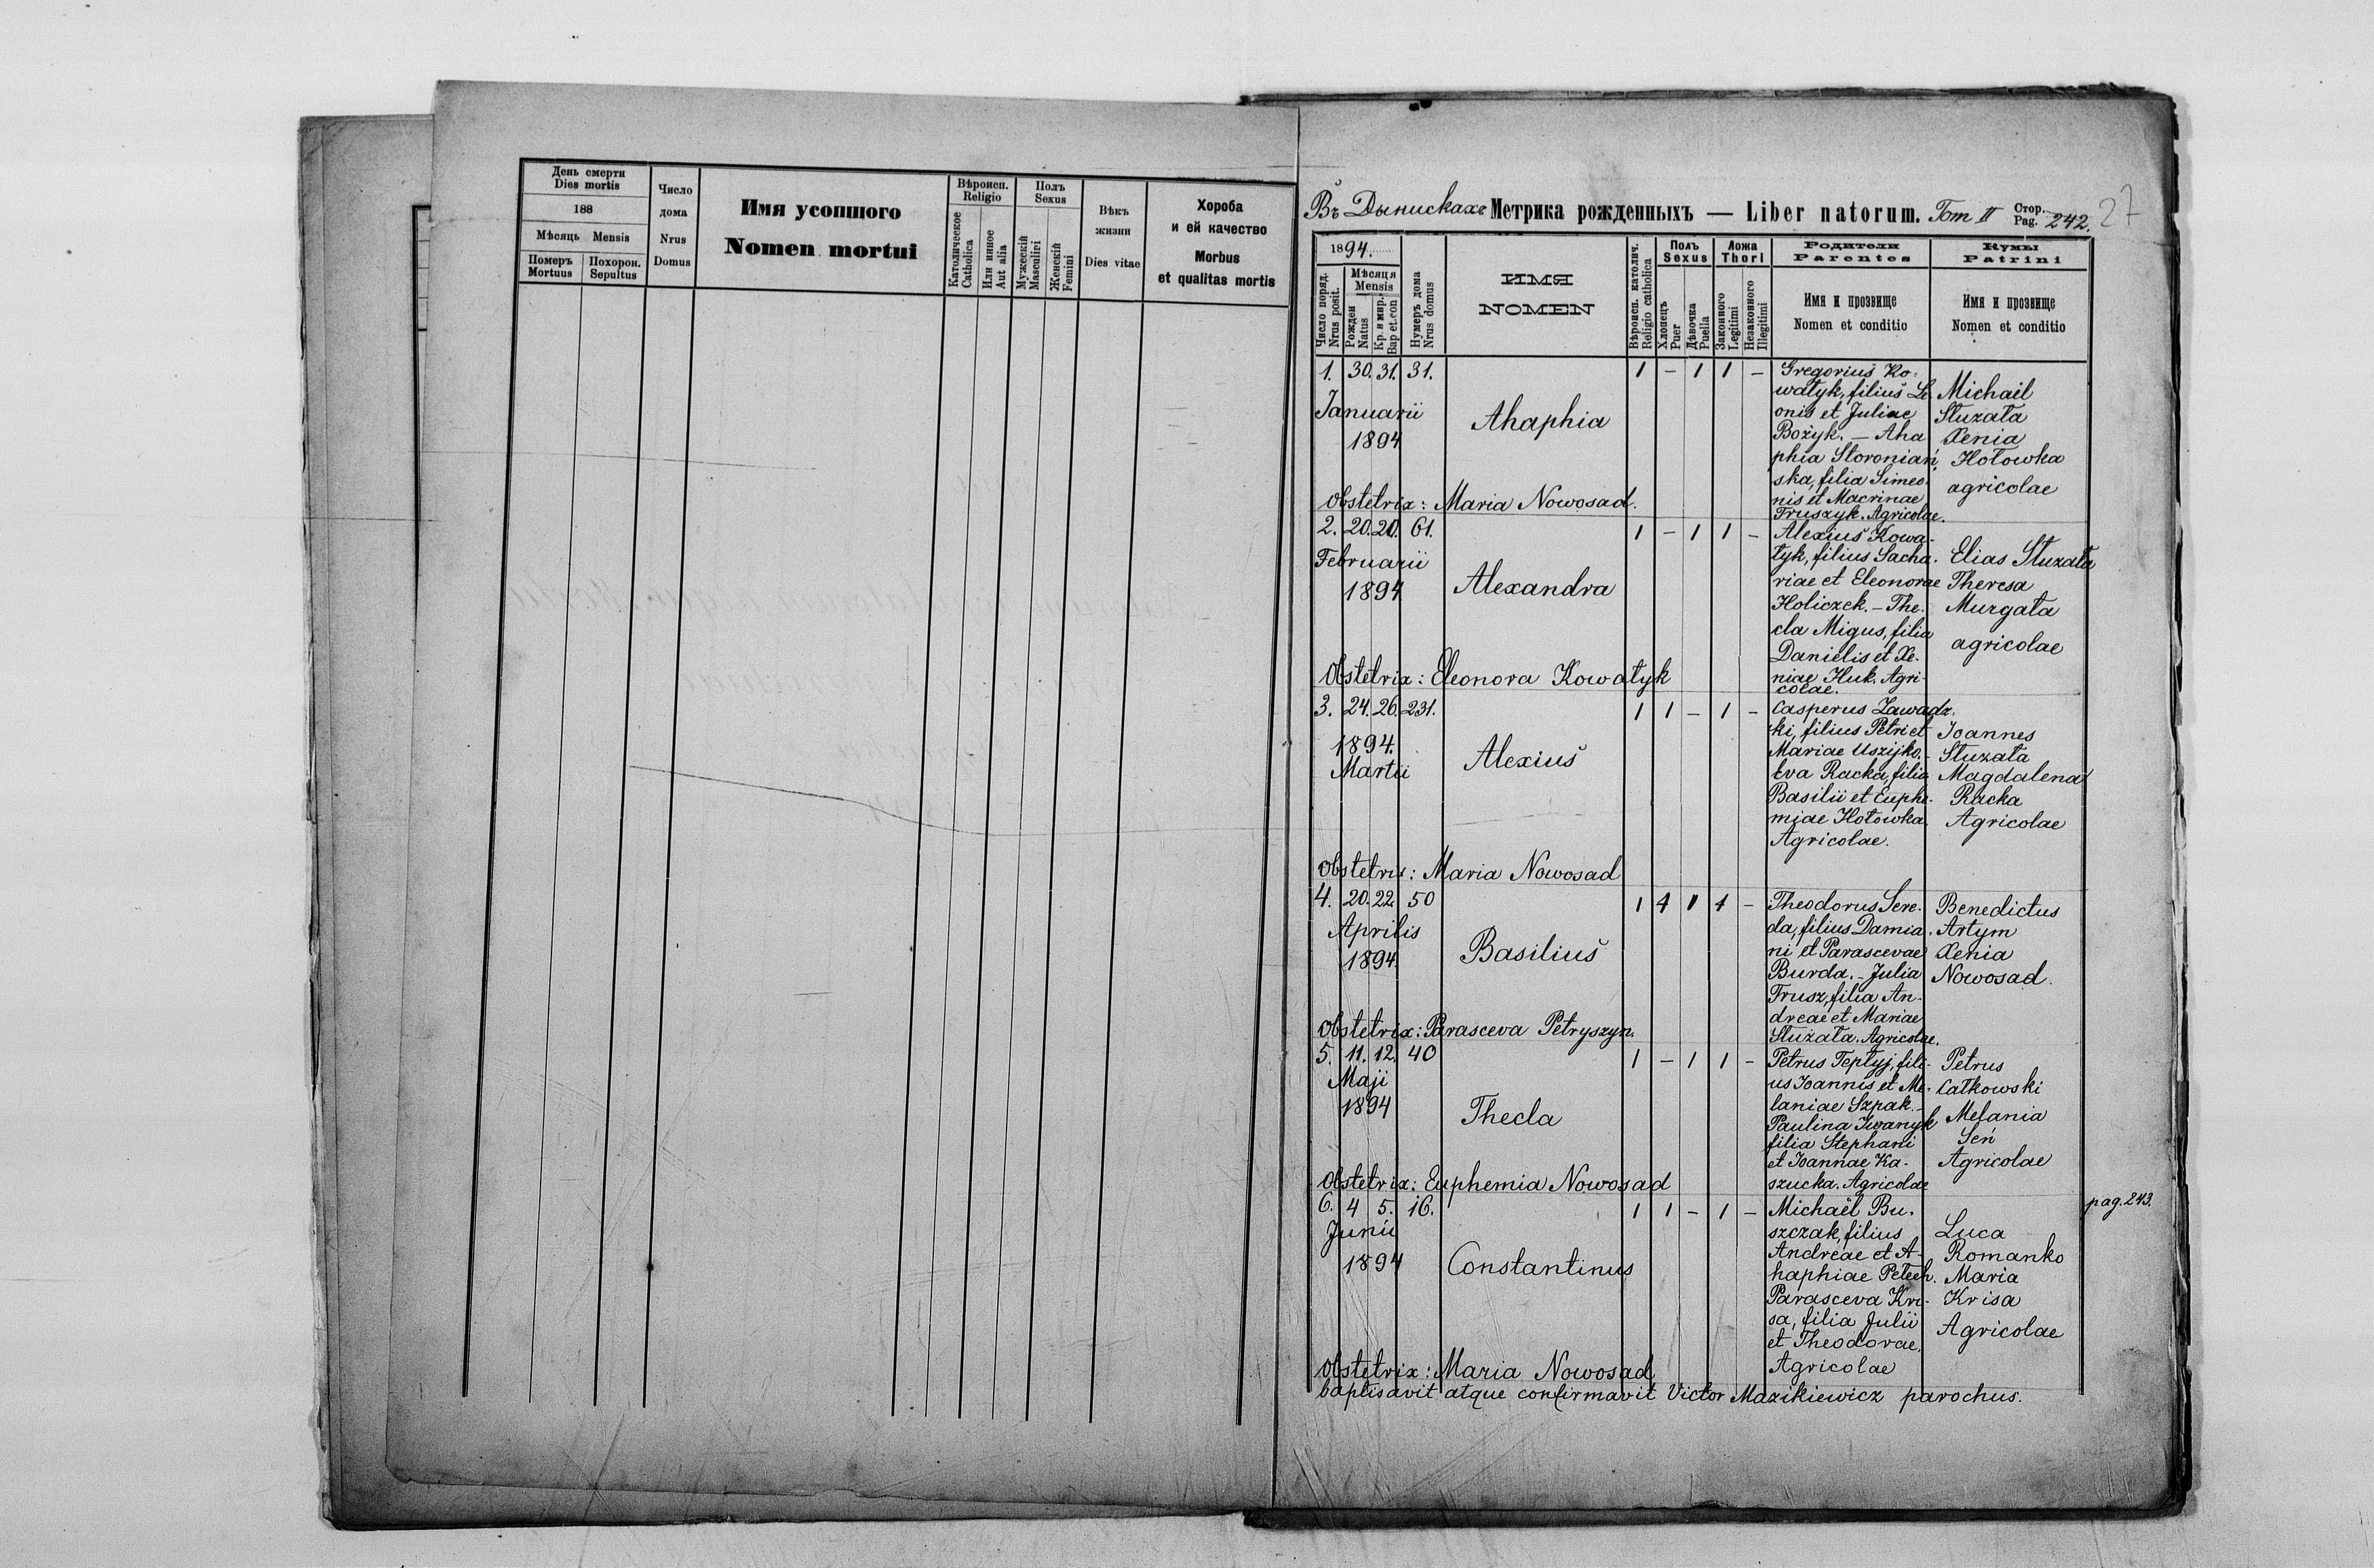 День смерти
Dies mortis
188
Мѣсяць Mensis
Померъ
Mortuus
Похорон.
Sepultus
Число
дома
Nrus
Domus
Имя усопшого
Nomen mortui
Вѣроисп.
Religio
Католическое
Catholica
Или инное
Aut alia
Полъ
Sexus
Мужескій
Masculini
Женскій
Femini
Вѣкъ
жизни
Dies vitae
Хороба
и ей качество
Morbus
et qualitas mortis
Въ Дынискахъ Метрика рожденныхъ — Liber natorum. Tom II Стор. Pag. 242. 27
1894.
Число поряд.
Nrus posit.
Мѣсяця
Mensis
Рожден
Natus
Кр. и мир.
Bap et.con
Нумеръ дома
Nrus domus
ИМЯ
NOMEN
Вѣроисп. католич.
Religio catholica
Полъ
Sexus
Хлопецъ
Puer
Дѣвочка
Puella
Ложа
Thori
Законного
Legitimi
Незаконного
Illegitimi
Родители
Parentes
Имя и прозвище
Nomen et conditio
Кумы
Patrini
Имя и прозвище
Nomen et conditio
1. 30. 31. 31.
Januarii
1894
Ahaphia
1 – 1 1 –
Gregorius Ko-
wałyk, filius Le
onis et Juliae
Bożyk. – Aha
phia Storoniań
ska, filia Simeo-
nis et Macrinae
Fruszyk. Agricolae.
Michail
Służała
Xenia
Hołowka
agricolae
Obstetrix: Maria Nowosad.
2. 20. 20. 61.
Februarii
1894
Alexandra
1 – 1 1 –
Alexius Kowa-
łyk, filius Sacha-
riae et Eleonorae
Holiczek. – The-
cla Migus, filia
Danielis et Xe-
niae Huk. Agri
colae.
Elias Służała
Theresa
Murgała
agricolae
Obstetrix: Eleonora Kowałyk
3. 24. 26. 231.
1894.
Martii
Alexius
1 1 – 1 –
Casperus Zawadz-
ki, filius Petri et
Mariae Uszijko. –
Eva Racka, filia
Basilii et Euphe-
miae Hołowka.
Agricolae.
Joannes
Służała
Magdalena
Racka
Agricolae
Obstetrix: Maria Nowosad
4. 20. 22. 50
Aprilis
1894.
Basilius
1 1 1 1 –
Theodorus Sere-
da, filius Damia-
ni et Parascevae
Burda. – Julia
Trusz, filia An-
dreae et Mariae
Służała. Agricolae.
Benedictus
Artym
Xenia
Nowosad.
Obstetrix: Parasceva Petryszyn.
5. 11. 12. 40
Maji
1894
Thecla
1 – 1 1 –
Petrus Tepłyj, fili-
us Joannis et Me-
laniae Szpak. –
Paulina Iwanyk
filia Stephani
et Joannae Ka-
szucka. Agricolae
Petrus
Całkowski
Melania
Seń
Agricolae
Obstetrix: Euphemia Nowosad
6. 4 5. 16.
Junii
1894
Constantinus
1 1 – 1 –
Michaël Bu-
szczak, filius
Andreae et A-
haphiae Petech.
Parasceva Kri-
sa, filia Julii
et Theodorae.
Agricolae
Luca
Romanko
Maria
Krisa
Agricolae
pag. 243.
Obstetrix: Maria Nowosad
baptisavit atque confirmavit Victor Mazikiewicz parochus.